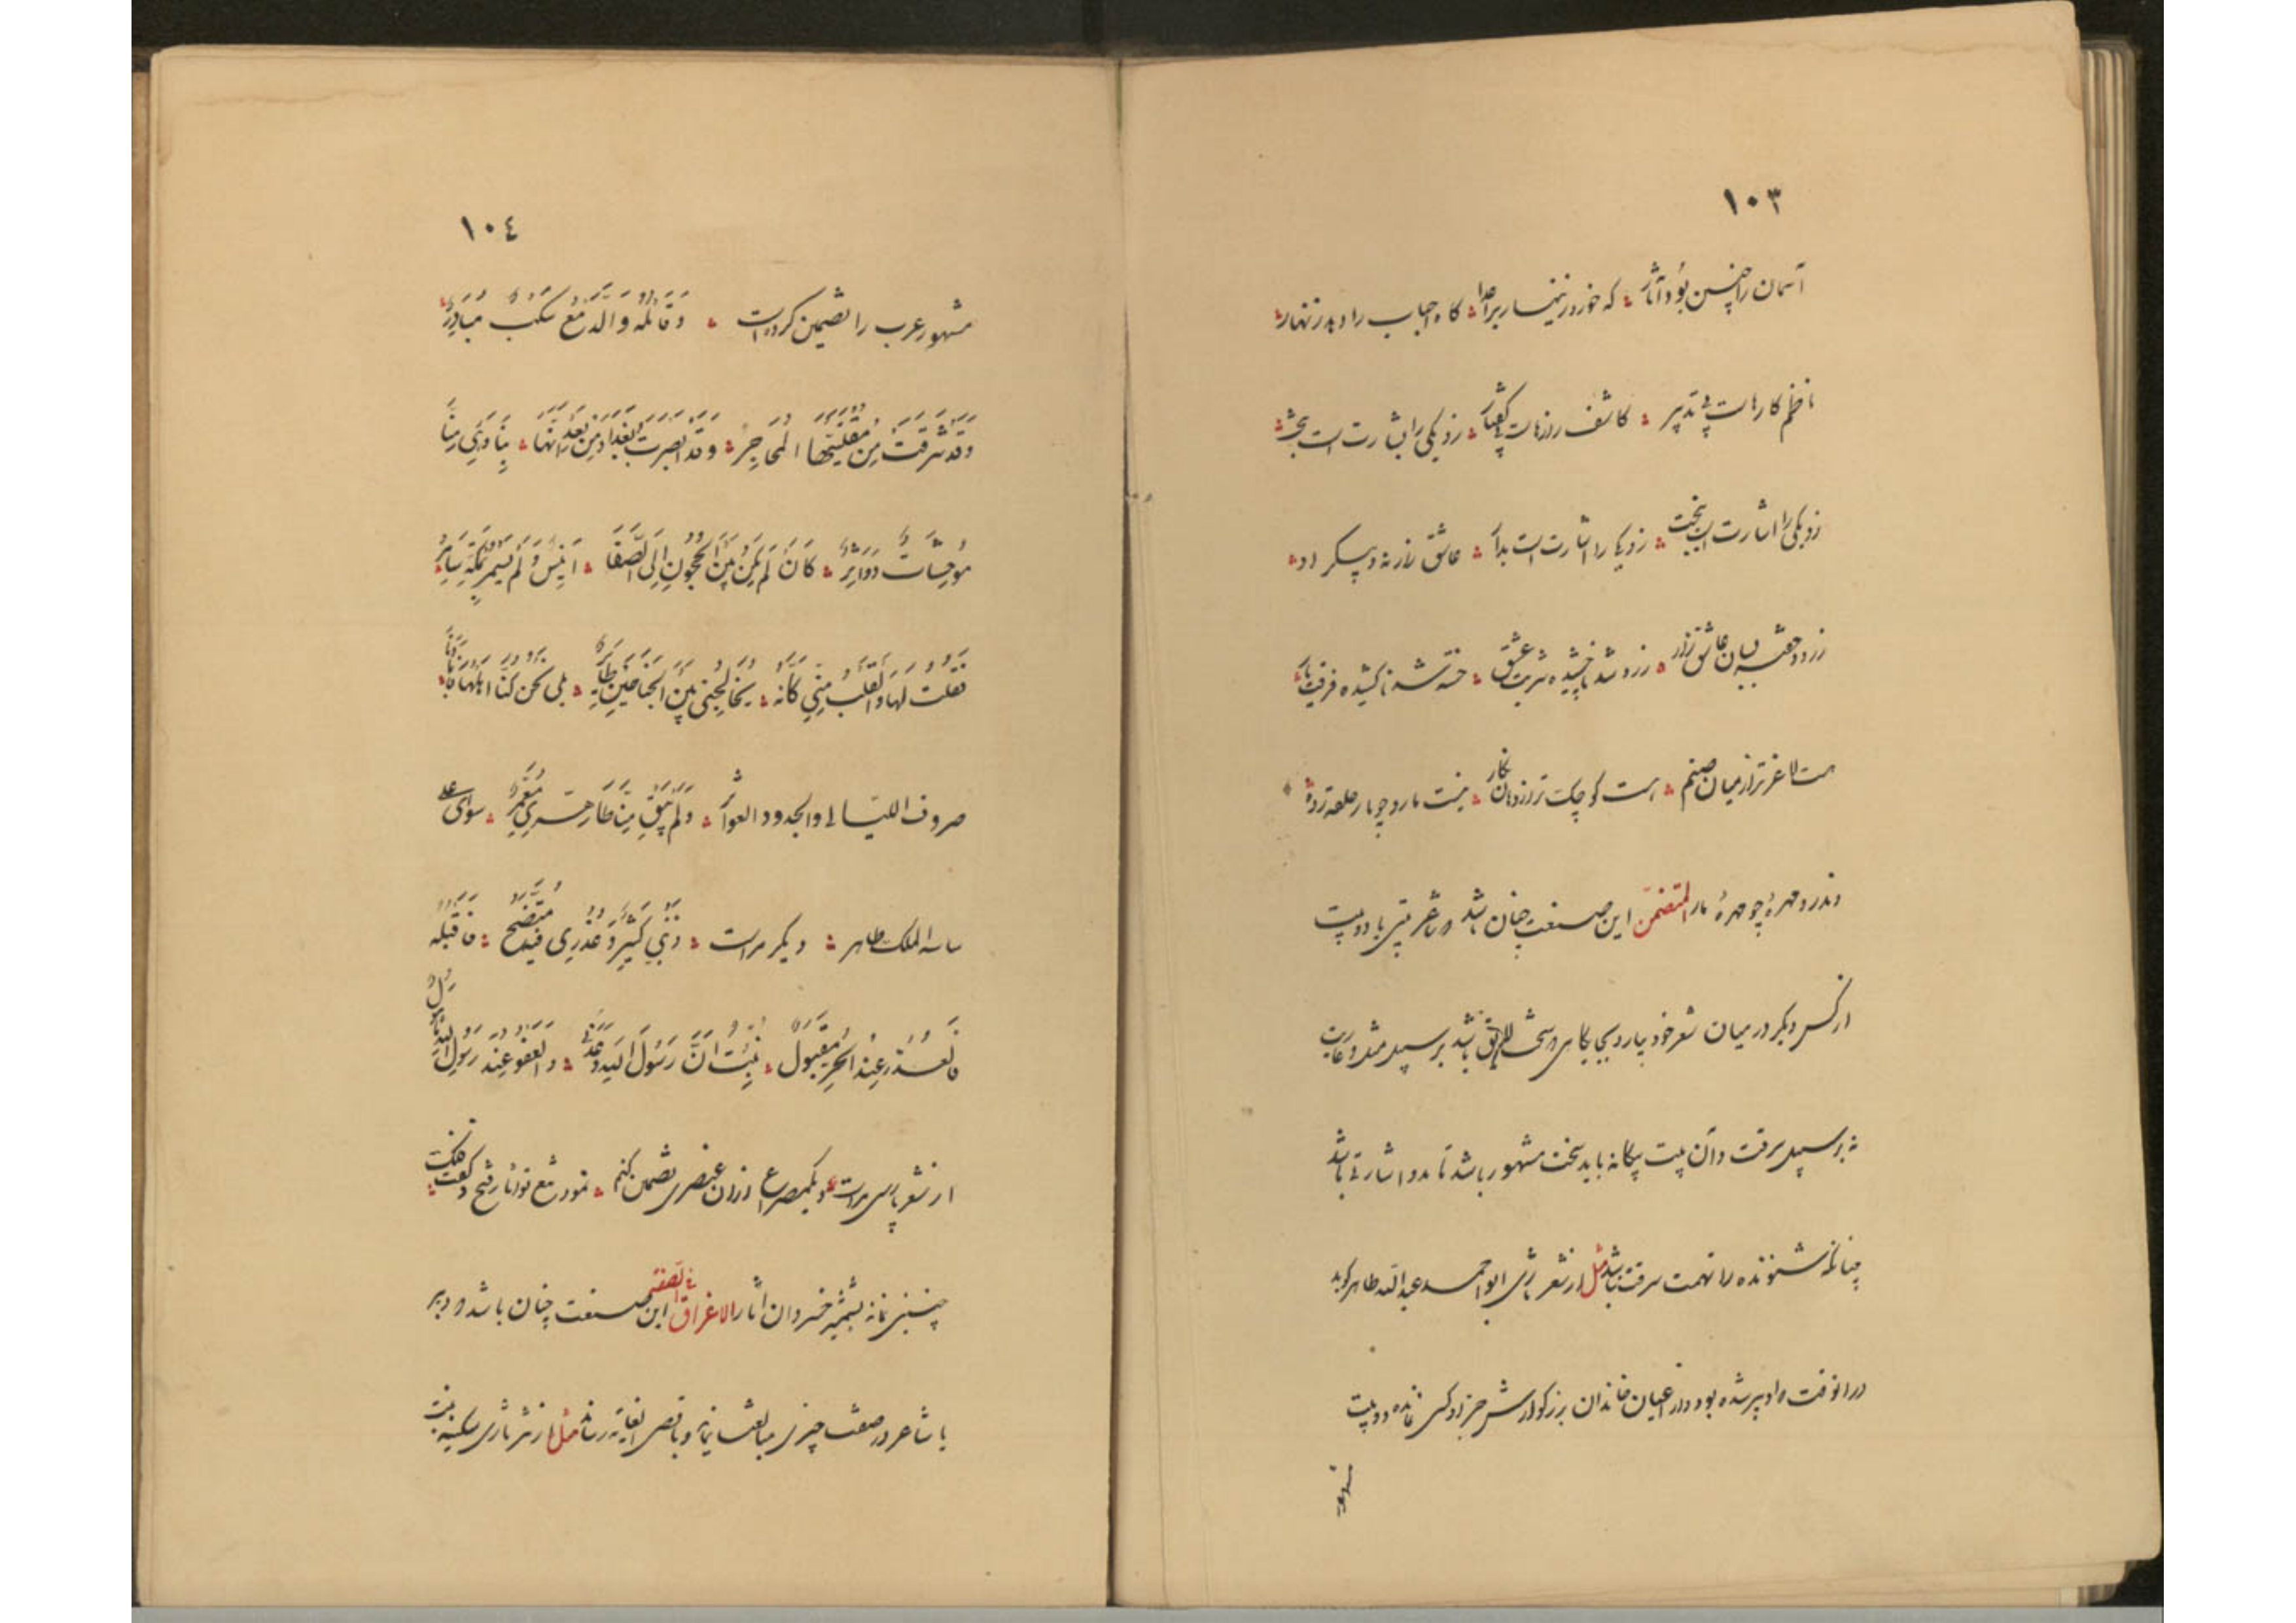 ١٠٣
آسمان را چنین بود آثار که خورد زینهار بر اعدا گاه احباب را دهد زنهار
ناظم کارهاست بی تدبیر کاشف رازهاست بی گفتار زو یکی را بشارت است
زو یکی را اشارت است زو یکی را اشارت است عاشق زار نه و پیکر او
زرد و خفته بسان عاشق زار زرد شد ناچشیده شربت عشق خسته شد ناکشیده فرقت یار
هست لاغرتر از میان صنم هست کوچک تر از دهان نگار نیست مار و چو مار حلقه زده
وندرو مهره چو مهره مار المتضمن این صنعت چنان باشد که شاعر بیتی یا دو بیت
از کس دیگر در میان شعر خود بیارد بجایگاهی که سخت لایق باشد بر سبیل تمثل و عاریت
نه بر سبیل سرقت و آن بیت بیگانه باید سخت مشهور باشد تا بدو اشارتی باشد
چنانکه شنونده را تهمت سرقت نباشد مثل از شعر تازی ابو احمد عبد الله طاهر گوید
در آنوقت که او پیر شده بود و از اعیان خاندان بزرگوارش جز او کس نمانده دو بیت
مشهور
١٠٤
مشهور عرب را تضمین کرده است وَقَائِلَةٍ وَالدَّمْعُ سَكْبٌ مُبَادِرُ
وَقَدْ شَرِقَتْ مِنْ مُقْلَتَيْهَا الْمَحَاجِرُ وَقَدْ اَبْصَرَتْ بَغْدَادَ مِنْ بَعْدِ اُنْسِهَا بِنَا وَهْيَ مِنَّا
مُوحِشَاتٌ دَوَاثِرُ كَانَ لَمْ يَكُنْ بَيْنَ الْحَجُونِ اِلَى الصَّفَا اَنِيسٌ وَلَمْ يَسْمُرْ بِمَكَّةَ سَامِرُ
فَقُلْتُ لَهَا وَالْقَلْبُ مِنِّي كَاَنَّهُ يُخَالِجُنِي بَيْنَ الْجَنَاحَيْنِ طَائِرُ بلى نحن كُنَّا اَهْلَهَا فَاَبَادَنَا
صروف الليالی والجدود العواثر وَلَمْ يَبْقَ مِنَّا طَاهِرِيٌّ مُعَمَّرٌ سوای علی
ساسه الملک طاهر دیگر مراست ذَنْبِي كَثِيرٌ وَعُذْرِی فِيهِ مُتَّضِحٌ فَاقْبَلْهُ
فَالْعُذْرُ عِنْدَ الْحُرِّ مَقْبُولُ نُبِّئْتُ اَنَّ رَسُولَ اللهِ اَوْعَدَنِي وَالْعَفْوُ عِنْدَ رَسُولِ اللهِ مَأْمُولُ
از شعر پارسی مراست و یکمصراع از آن عنصری تضمین کنم نمود تیغ تو آثار فتح و گفت فلک
چنین نماید شمشیر خسروان آثار الاغراق فی الصفة این صنعت چنان باشد که دبیر
یا شاعر در صفت چیزی مبالغت نماید و باقصی الغایة رساند مثل از نثر تازی سکینه بنت